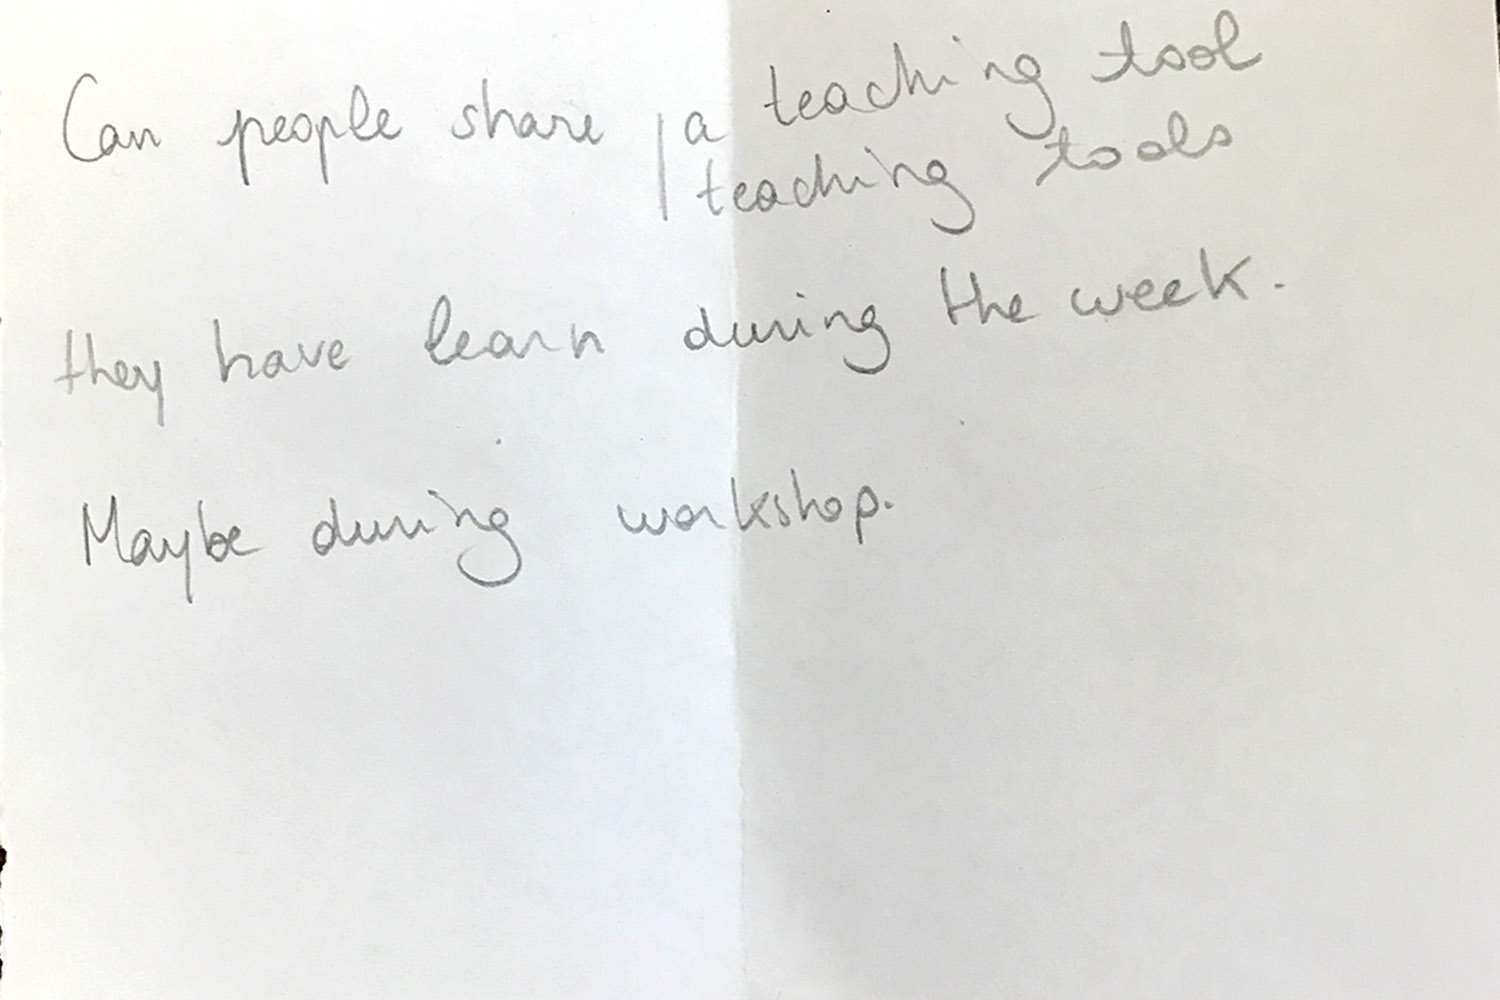 Can people share | a teaching tool
| teaching tools
they have learn during the week.
Maybe during workshop.